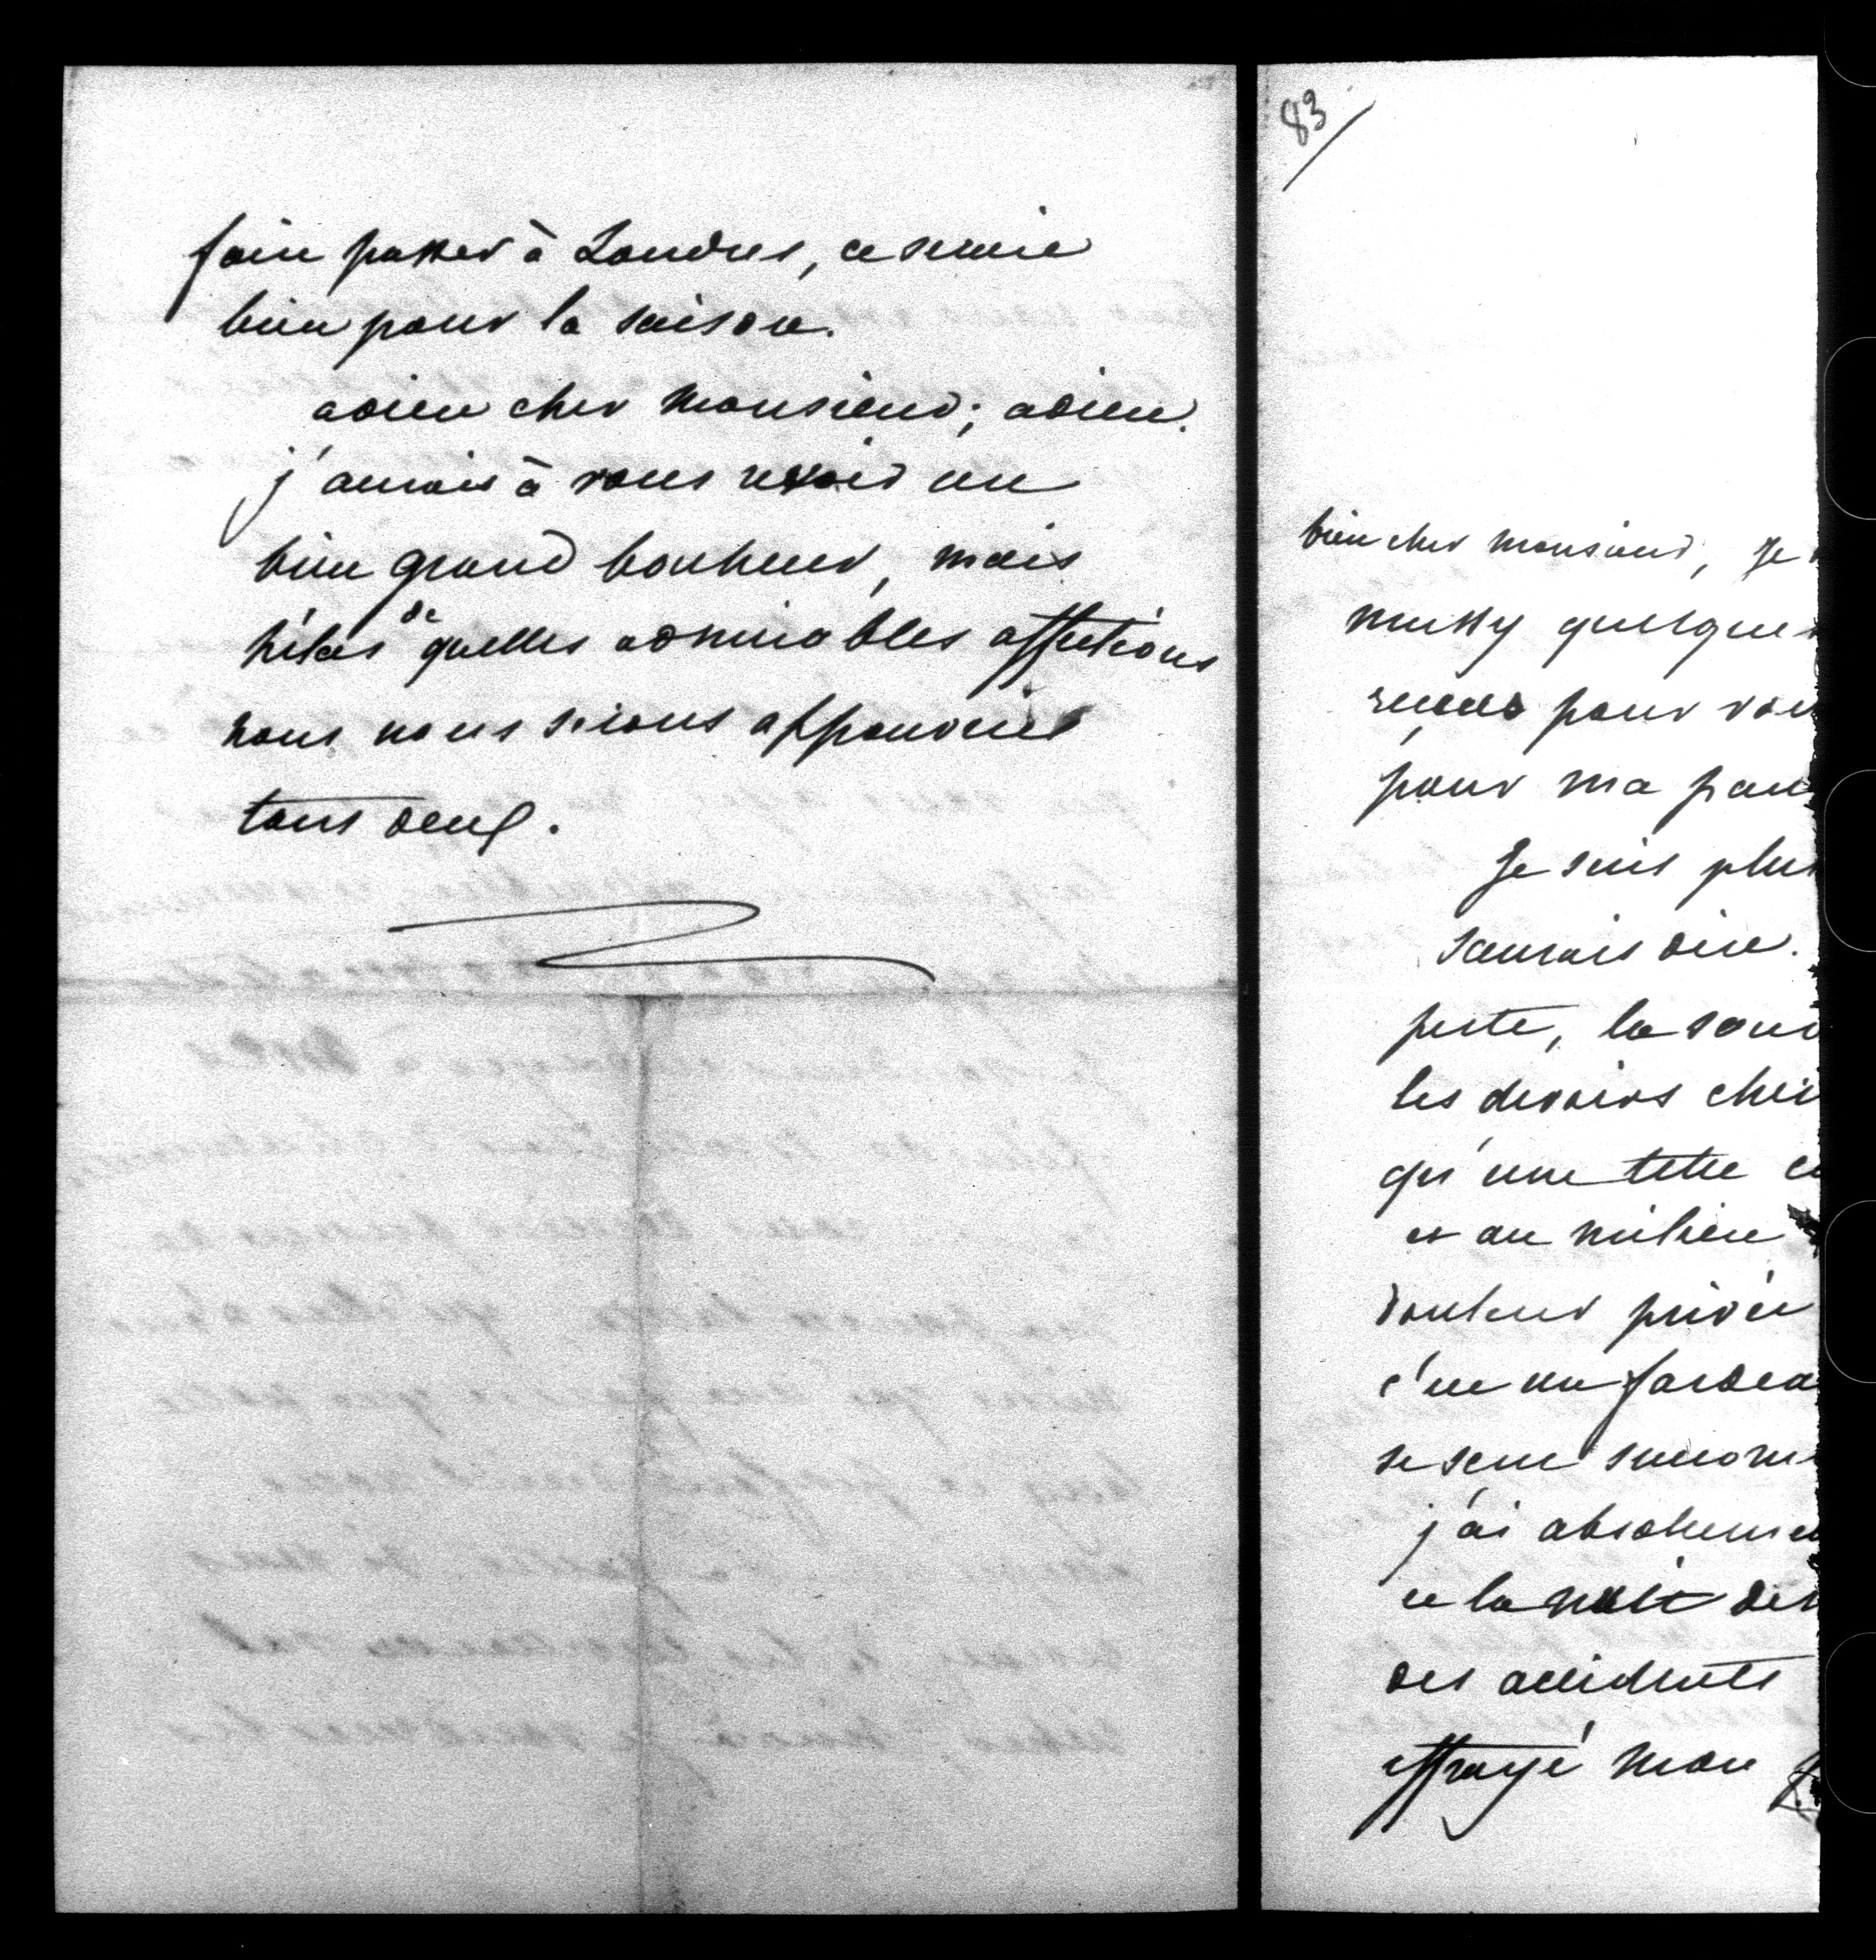 faire passer à Londres, ce serait
bien pour la saison.
adieu cher monsieur; adieu.
j'aurais à vous revoir un
bien grand bonheur, mais
hélas de quelles admirables affections
nous nous serions appauvris
tous deux.
83
bien cher monsieur, je
mussy quelque
pour vou
pour ma pau
Je suis plus
saurais dire.
perte, la
les devoirs
qu'une telle
et au milieu
douleur privée
c'est un fardea
se sent
j'ai absolumen
et la nuit der
des accidents
effrayé mon